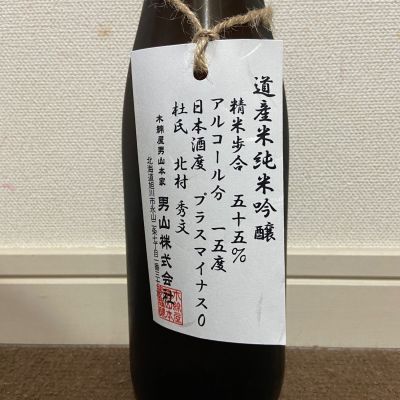 道産米純米吟醸
精米歩合 五十五%
アルコール分 一五度
日本酒度 プラスマイナス0
杜氏 北村 秀文
木綿屋男山本家 男山株式会社
北海道旭川市永山二条七丁目一番三十